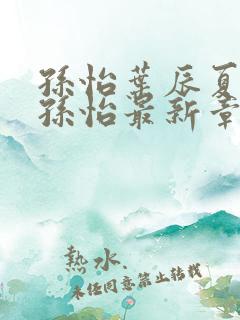 孫怡葉辰夏
孫怡最新章
熱水.
未經同意禁止轉載